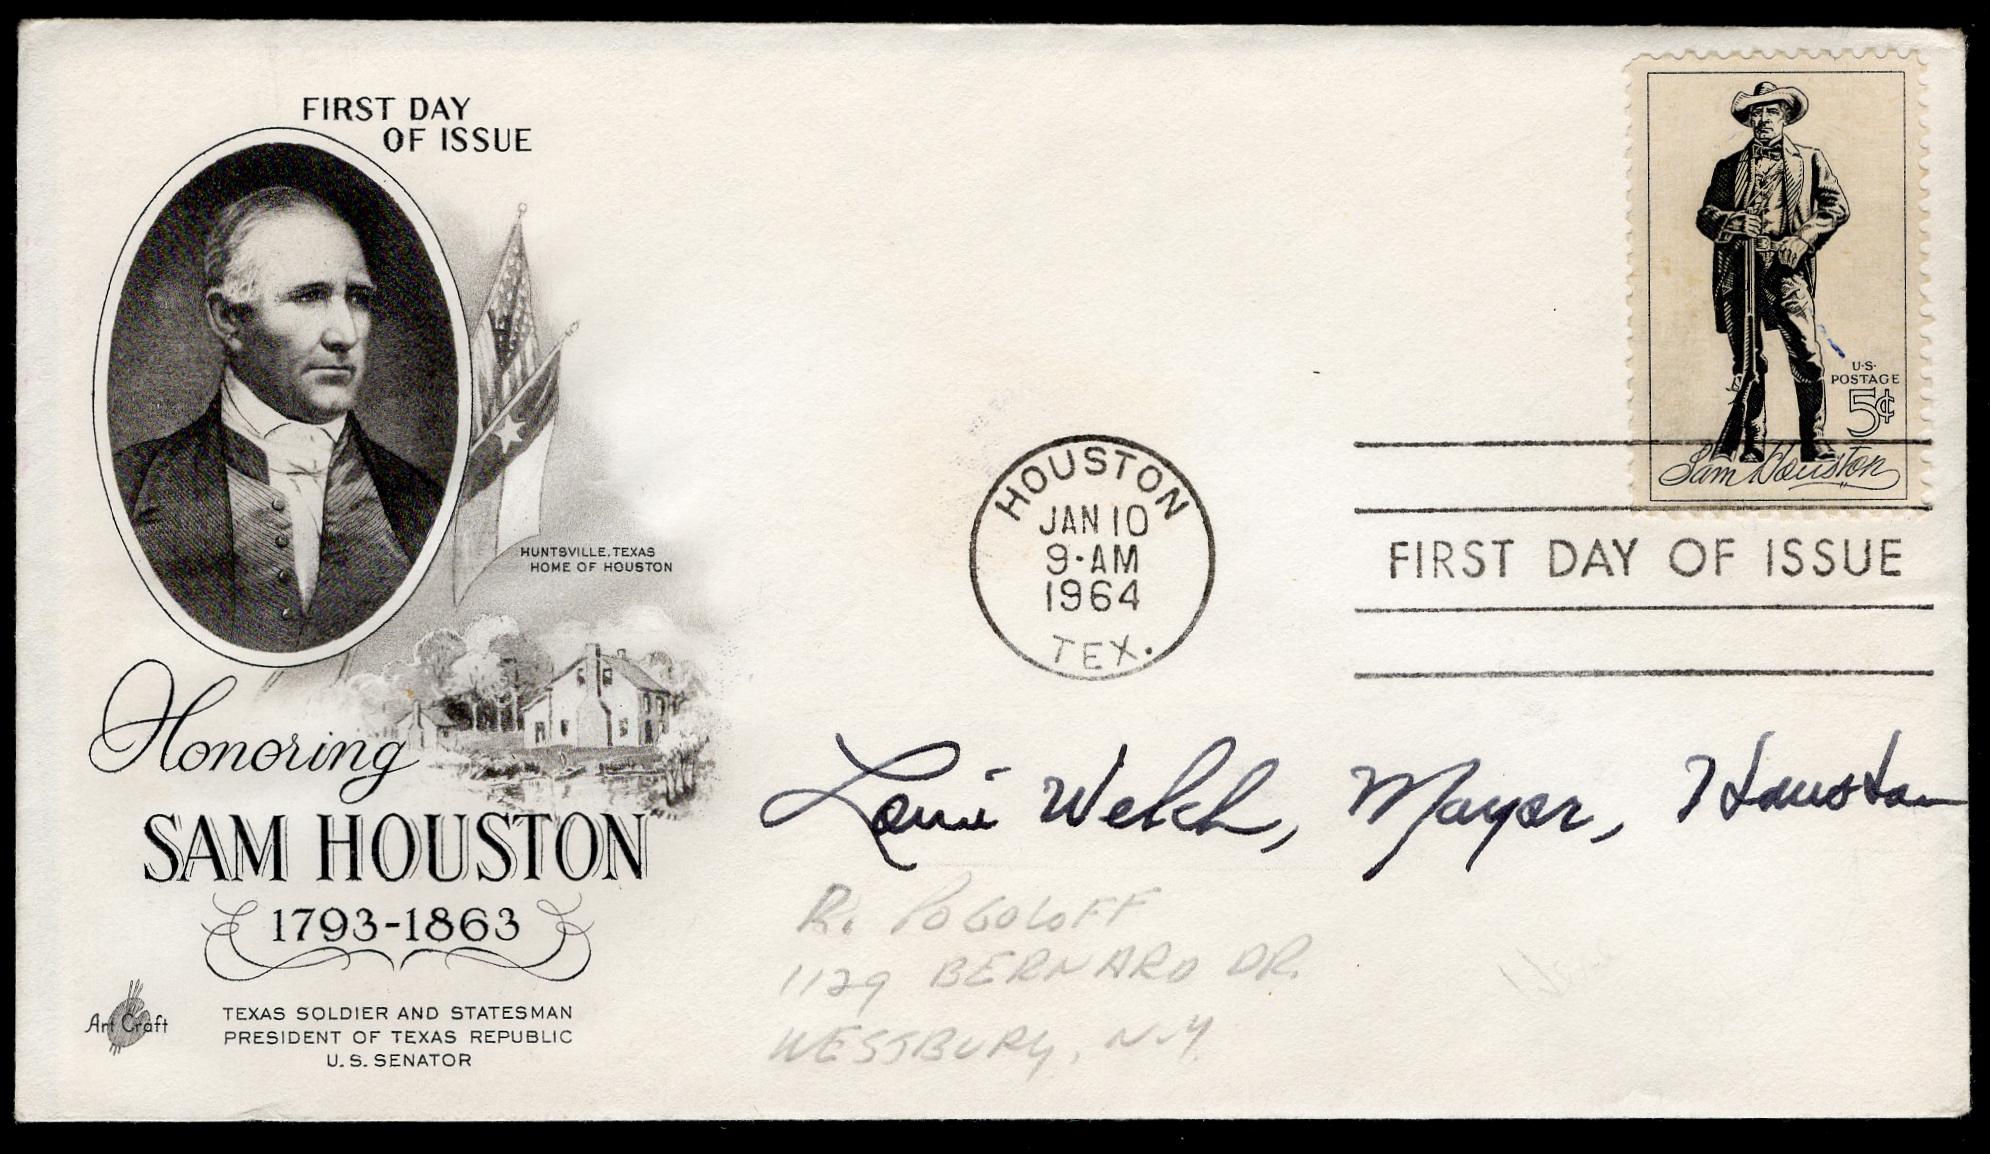 FIRST DAY
OF ISSUE
HUNTSVILLE, TEXAS
HOME OF HOUSTON
Honoring
SAM HOUSTON
1793-1863
Art Craft
TEXAS SOLDIER AND STATESMAN
PRESIDENT OF TEXAS REPUBLIC
U. S. SENATOR
HOUSTON
JAN 10
9-AM
1964
TEX.
U.S.
POSTAGE
5¢
Sam Houston
FIRST DAY OF ISSUE
Louie Welch, Mayor, Houston
R. POGOLOFF
1129 BERNARD DR.
WESTBURY, N.Y.